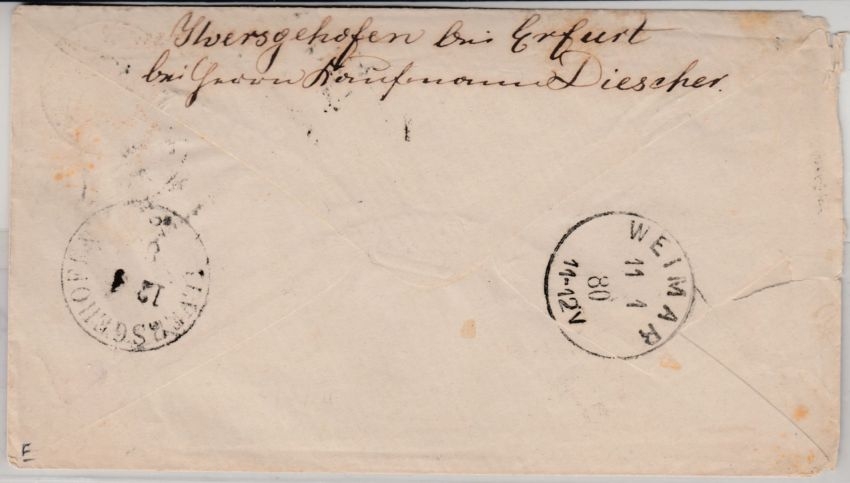 Ilversgehofen bei Erfurt
bei Herrn Kaufmann Diescher.
WEIMAR
11 1
80
11-12V
ILVERSGEHOFEN
12 1
E